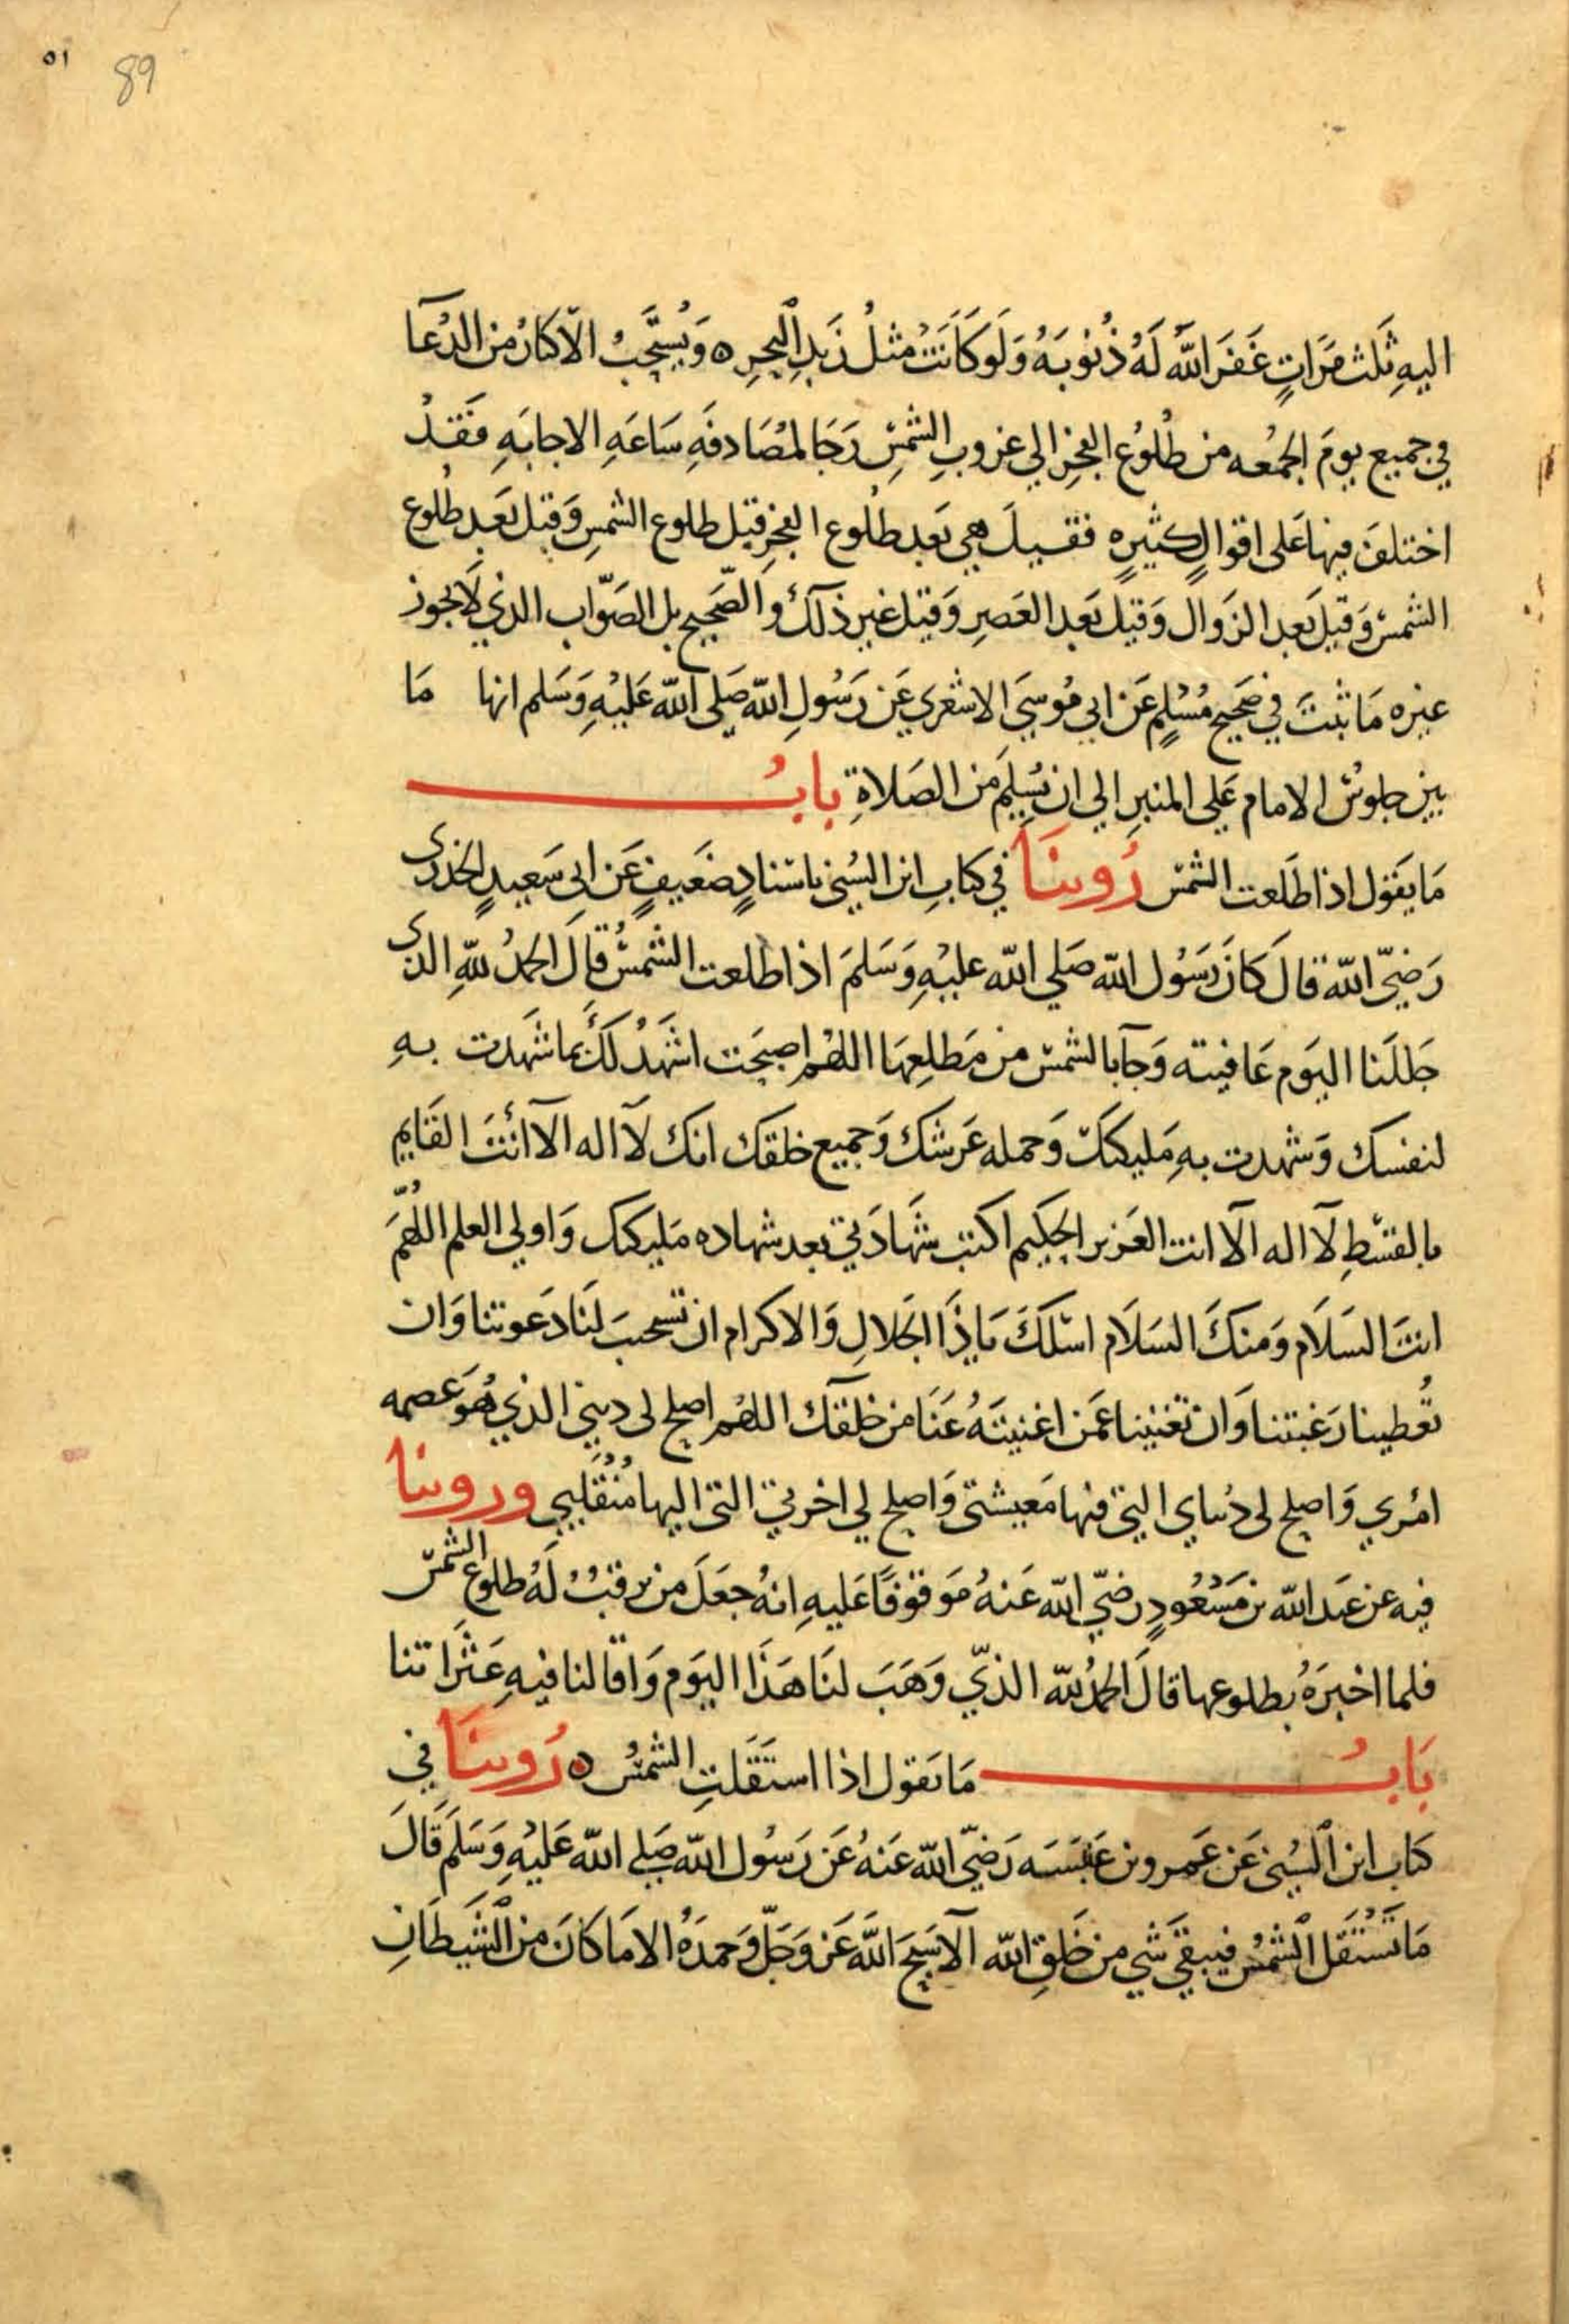 ٥١
89
اليهِ ثَلث مَرَّاتٍ غَفَرَ اللّٰه لَهُ ذُنُوبَهُ وَلَو كَانَتْ مثلُ زَبدِ البحرِ ه وَيُستَحَبُّ الاّكثارُ من الدُعآ
في جميع يومَ الجمُعه من طُلُوُع الفجرِ الي غروبِ الشمسِ رَجَا لمُصَادفَهِ سَاعَهِ الاجابَهِ فَقدْ
اختلفَ فيهَا عَلى اقوالٍ كثيرٍه فقيلَ هي بَعد طلُوع الفجرِ قبل طلوع الشمسِ وَقيل بَعدِ طُلوع
الشمس وَقيلَ بَعد الزوال وَقيل بَعد العَصرِ وَقيل غير ذلكَ والصَحيح بل الصَوّاب الذي لَا يجوز
غيره مَا ثبتَ في صَحيح مُسْلِمٍ عَن ابي مُوسَيَ الاشعَري عَن رَسُولِ اللّه صَلي اللّه عَليْهِ وَسَلم انها مَا
بين جلوسُ الامام عَلي المنبرِ الي ان يُسلِمَ من الصَلاةِ بابُ
مَا يقول اذا طَلَعت الشمس رُوينَا في كتابِ ابن السُني باسنادٍ ضَعيفٍ عَن ابى سَعيدٍ الخدرى
رَضيّ اللّه قالَ كَانَ رَسُول اللّه صَلي اللّه عليْهِ وَسَلمَ اذا طلعت الشمسُ قالَ الحمدُ للّهِ الذى
جَللَنا اليَوم عَافيته وَجآ بالشمس من مَطلِعِهَا اللهُم اصبَحَت اشهَدُ لَكَ بما شَهدت بهِ
لنفسك وَشهدت بهِ مَليكتكَ وَحمله عَرشك وَجميع خلقك انك لآ اله الآ أنتَ القَايم
بالقسْطِ لآ اله الآ انت العَزيز الحكيم اكتب شَهَادَتي بعد شهاده مَليكتك وَاولي العلم اللهُمّ
انتَ السَلَام وَمنكَ السَلَام اسلكَ يَا ذَا الجَلالِ وَالاكرام ان تستحبَ لَنَا دَعوتنا وَان
تُعطينا رَغبتنا وَان تغنينا عَمن اغنيتَهُ عَنَا من خلقكَ اللهُم اصلح لى ديني الذي هُوَ عصمه
امْري وَاصلح لى دنياي التي فيها مَعيشتى وَاصلح لي اخرتي التى اليها مُنْقَلبي وروينا
فيه عن عَبد اللّه بن مَسْعُودٍ رضيّ اللّه عَنهُ مَوقوُفًا عَليهِ انهُ جعَلَ من يرقبُ لَهُ طلوع الشمس
فلما اخبرَهُ بطلوعها قالَ الحمدُ للّه الذيّ وَهَبَ لنَا هَذَا اليَوم وَاقالنا فيهِ عَثَراتنا
بَابُ مَا يقول اذا استَقَلتِ الشمسُ ه رُوينَا في
كتاب ابن السُني عَن عَمرو بن عَبَسَه رَضيّ اللّه عَنهُ عَن رَسُول اللّه صَلي اللّه عَليْهِ وَسَلَم قَالَ
مَا تَسْتَقَل الشمُس فيبقيَ شي من خَلقِ اللّه الآ سَبحَ اللَّه عَز وَجَلّ وَحمدَهُ الا مَا كَانَ من الشيطَانِ